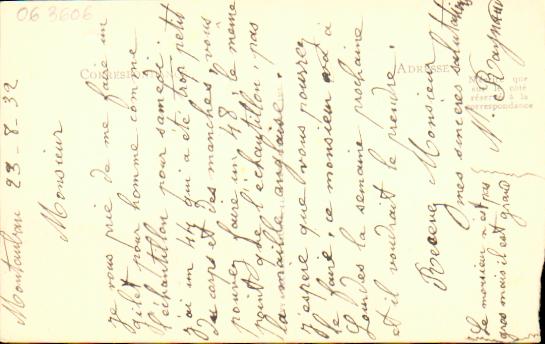 063606
CORRES
ADRESSE
Montauban 23-8-32
Monsieur
je vous prie de me faire un
gilet pour homme comme
l'échantillon pour samedi
j'ai un 44 qui a été trop petit
du corps et des manches, vous
pouvez faire un 48 le même
point que l'échantillon, pas
la maille anglaise.
J'espère que vous pourrez
le faire, ce monsieur va à
Lourdes la semaine prochaine
et il voudrait le prendre.
Recevez Monsieur
mes sincères salutations
N. Raynaud
Le monsieur n'est pas
gros mais il est grand
que
le côté
réservé à la
correspondance